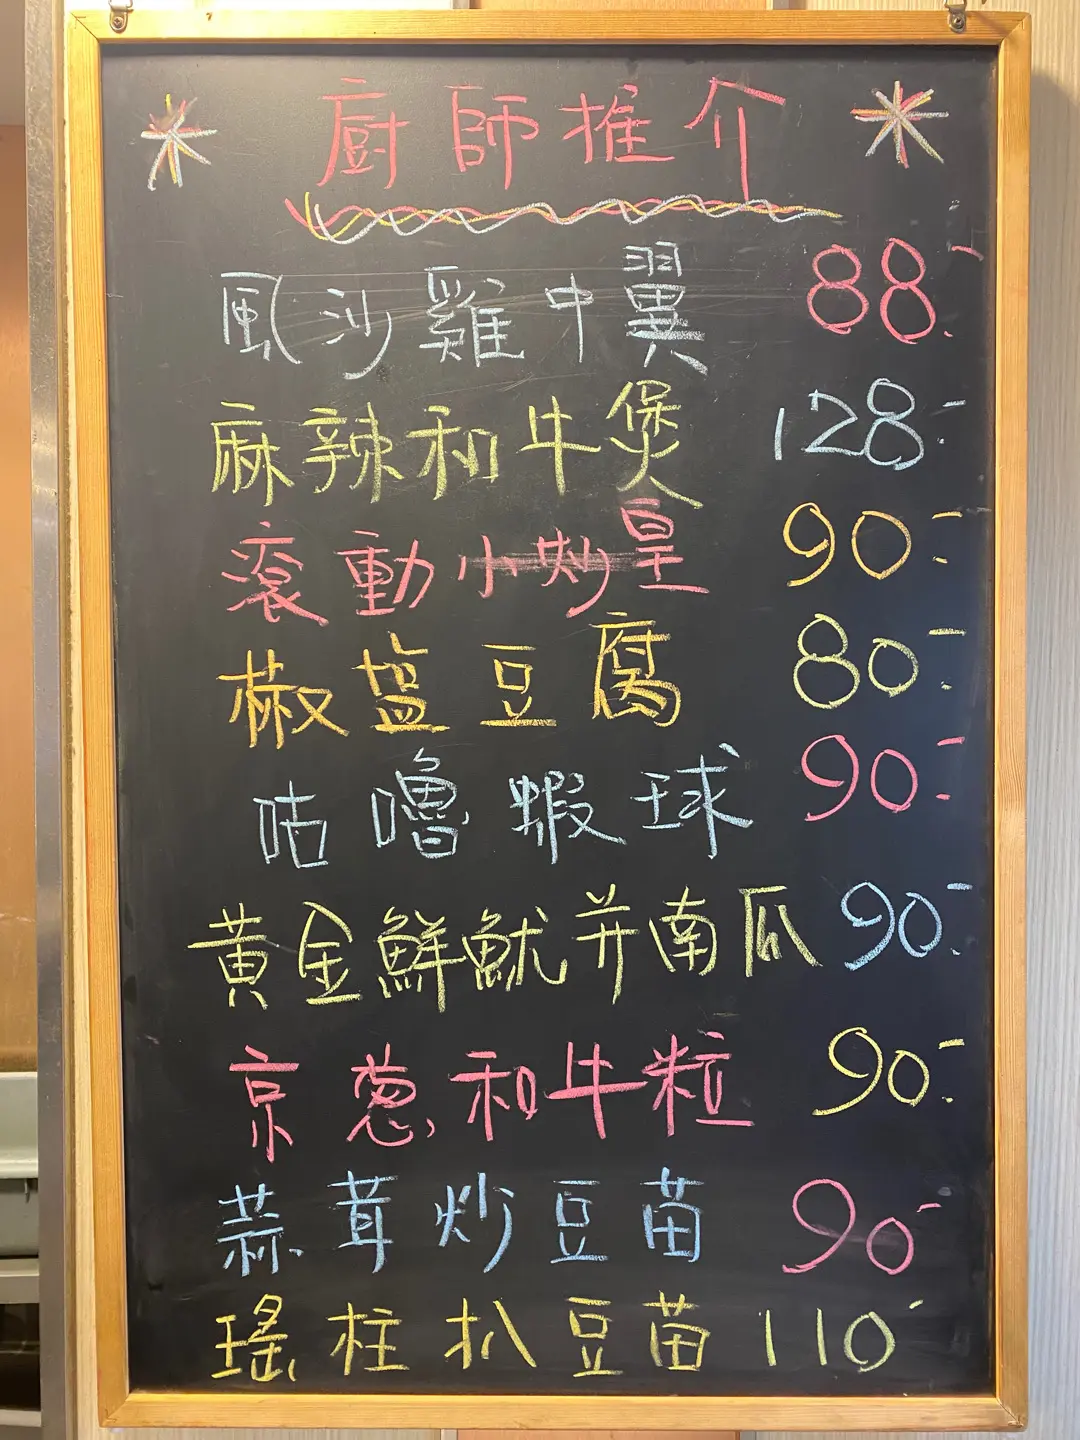 廚師推介
風沙雞中翼 88.-
麻辣和牛煲 128.-
滾動小炒皇 90.-
椒塩豆腐 80.-
咕嚕蝦球 90.-
黃金鮮魷并南瓜 90.-
京葱和牛粒 90.-
蒜茸炒豆苗 90-
瑤柱扒豆苗 110-